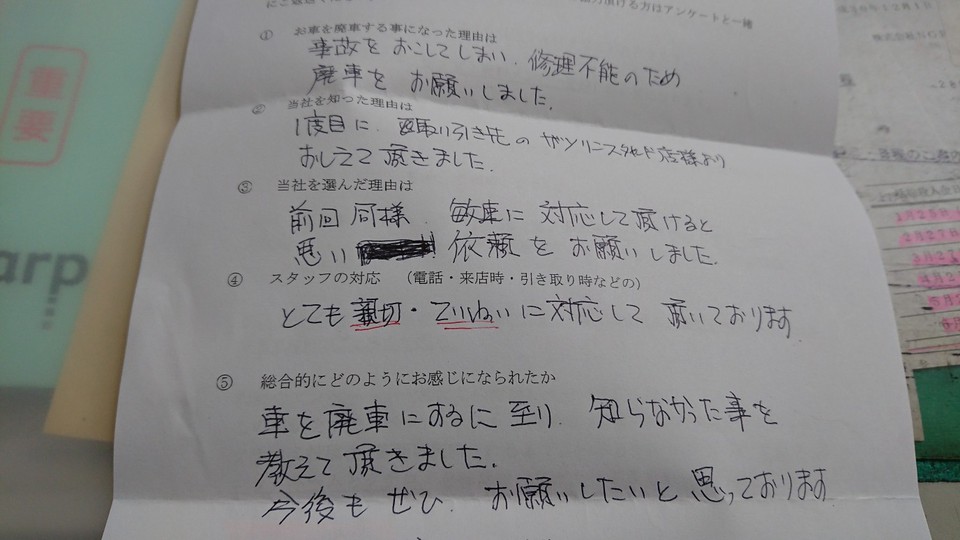 重要
arp
にご返送
頂ける方はアンケートと一緒
① お車を廃車する事になった理由は
事故をおこしてしまい、修理不能のため
廃車を お願いしました。
② 当社を知った理由は
1度目に、取り引き先の ガソリンスタンド店様より
おしえて頂きました。
③ 当社を選んだ理由は
前回同様、敏速に対応して頂けると
思い 依頼をお願いしました。
④ スタッフの対応 （電話・来店時・引き取り時などの）
とても親切・ていねいに対応して頂いております
⑤ 総合的にどのようにお感じになられたか
車を廃車にするに至り、知らなかった事を
教えて頂きました。
今後もぜひ、お願いしたいと思っております